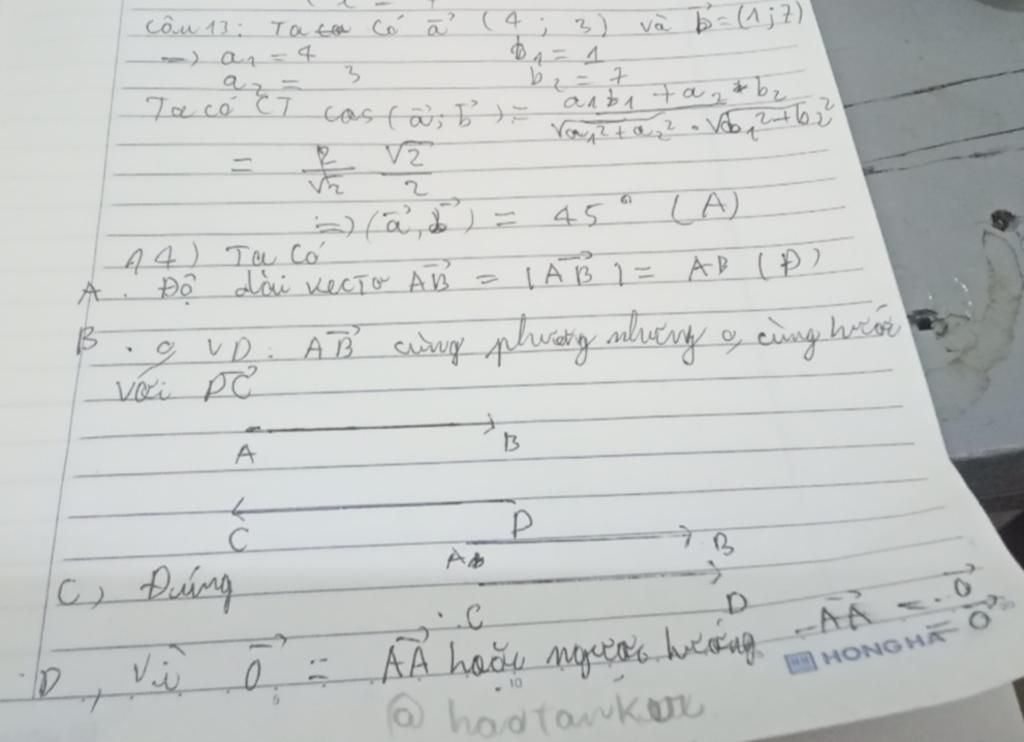 Câu 13: Ta có a⃗ (4 ; 3) và b⃗ = (1 ; 7)
→ a₁ = 4 b₁ = 1
a₂ = 3 b₂ = 7
Ta có CT cos (a⃗ ; b⃗) = a₁b₁ + a₂ * b₂ / √a₁² + a₂² . √b₁² + b₂²
= /√2 √2/2
=> (a⃗, b⃗) = 45° (A)
14) Ta có
A. Độ dài vectơ AB⃗ = |AB⃗| = AB (Đ)
B. VD: AB⃗ cùng phương nhưng cùng hướng
với DC⃗
A B
C D
A B
C) Đúng
C D
D, Vì 0⃗ = AA⃗ hoặc ngược hướng - AA⃗ = 0⃗
HONG HA 0⃗
10
@haotankor